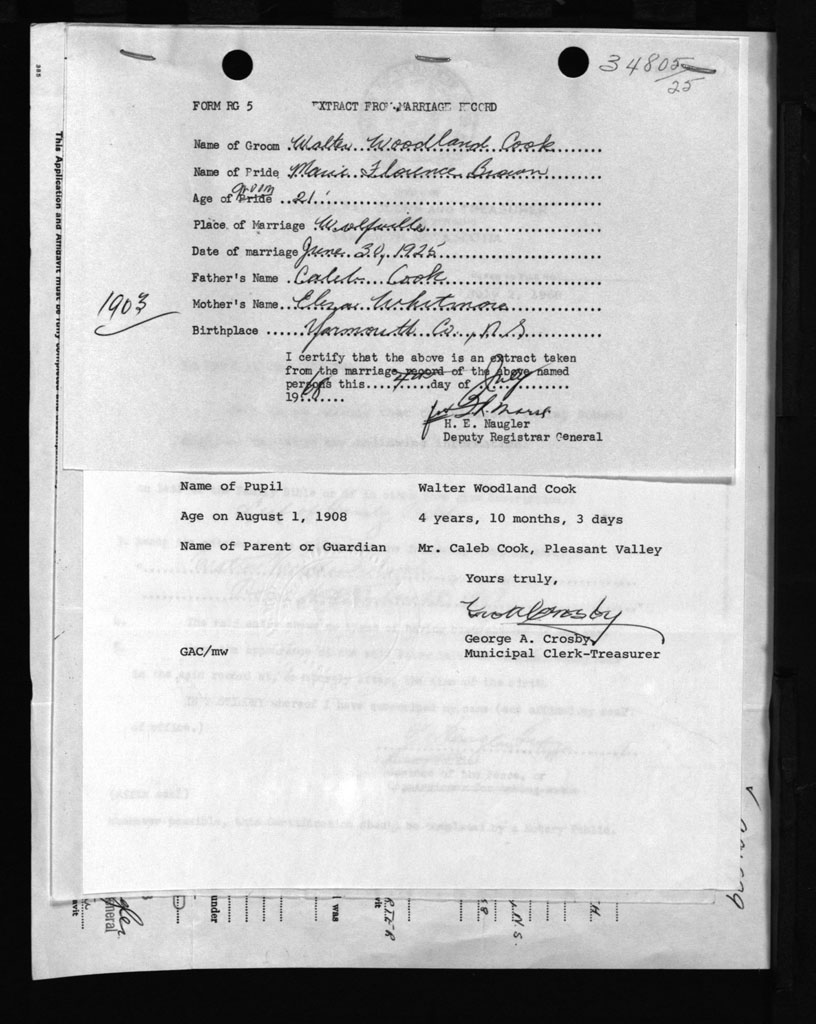 34805
25
FORM RG 5 EXTRACT FROM MARRIAGE RECORD
Name of Groom Walter Woodland Cook
Name of Pride Marie Florence Brown
groom
Age of Pride ..21
Place of Marriage Wolfville
Date of marriage June 30, 1925
Father's Name .Caleb Cook
1903
Mother's Name..Eliza Whitmore
Birthplace ......Yarmouth Co., N.S.
I certify that the above is an extract taken
from the marriage record of the above named
persons this.... day of July
1968
for
H. E. Naugler
Deputy Registrar General
Name of Pupil Walter Woodland Cook
Age on August 1, 1908 4 years, 10 months, 3 days
Name of Parent or Guardian Mr. Caleb Cook, Pleasant Valley
Yours truly,
George A. Crosby,
GAC/mw Municipal Clerk-Treasurer
This Application and Affidavit must be fully
under
I was
N.S.